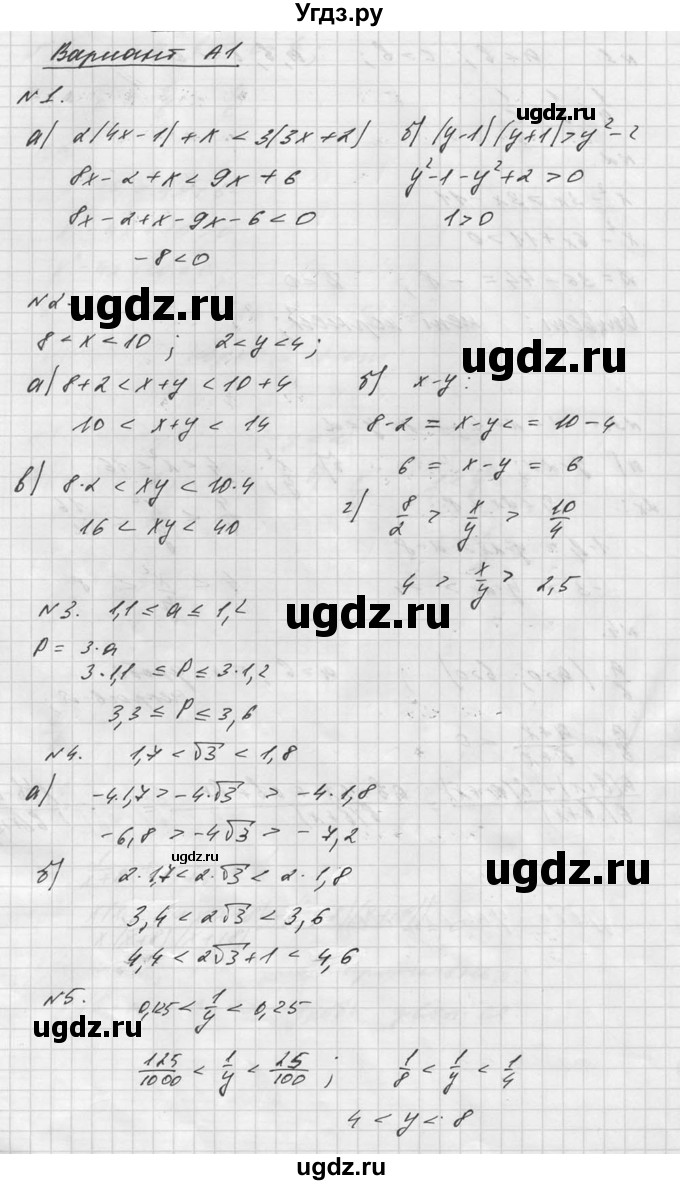 Угдз.ру
Вариант А1
№1.
а) 2(4x-1)+x<3(3x+2)
8x-2+x<9x+6
8x-2+x-9x-6<0
-8<0
ugdz.ru
б) (y-1)(y+1)>y²-2
y²-1-y²+2>0
1>0
№2.
ugdz.ru
8<x<10; 2<y<4;
ugdz.ru
а) 8+2<x+y<10+4
10<x+y<14
б) x-y:
8-2=x-y<=10-4
6=x-y=6
в) 8·2<xy<10·4
16<xy<40
г) 8/2>x/y>10/4
4>x/y>2,5
№3. 1,1≤a≤1,2
ugdz.ru
P=3·a
3·1,1≤P≤3·1,2
3,3≤P≤3,6
№4. 1,7<√3<1,8
а) -4·1,7>-4·√3>-4·1,8
-6,8>-4√3>-7,2
ugdz.ru
б) 2·1,7<2·√3<2·1,8
ugdz.ru
3,4<2√3<3,6
4,4<2√3+1<4,6
№5. 0,125<1/y<0,25
ugdz.ru
125/1000<1/y<25/100; 1/8<1/y<1/4
4<y<8
ugdz.ru